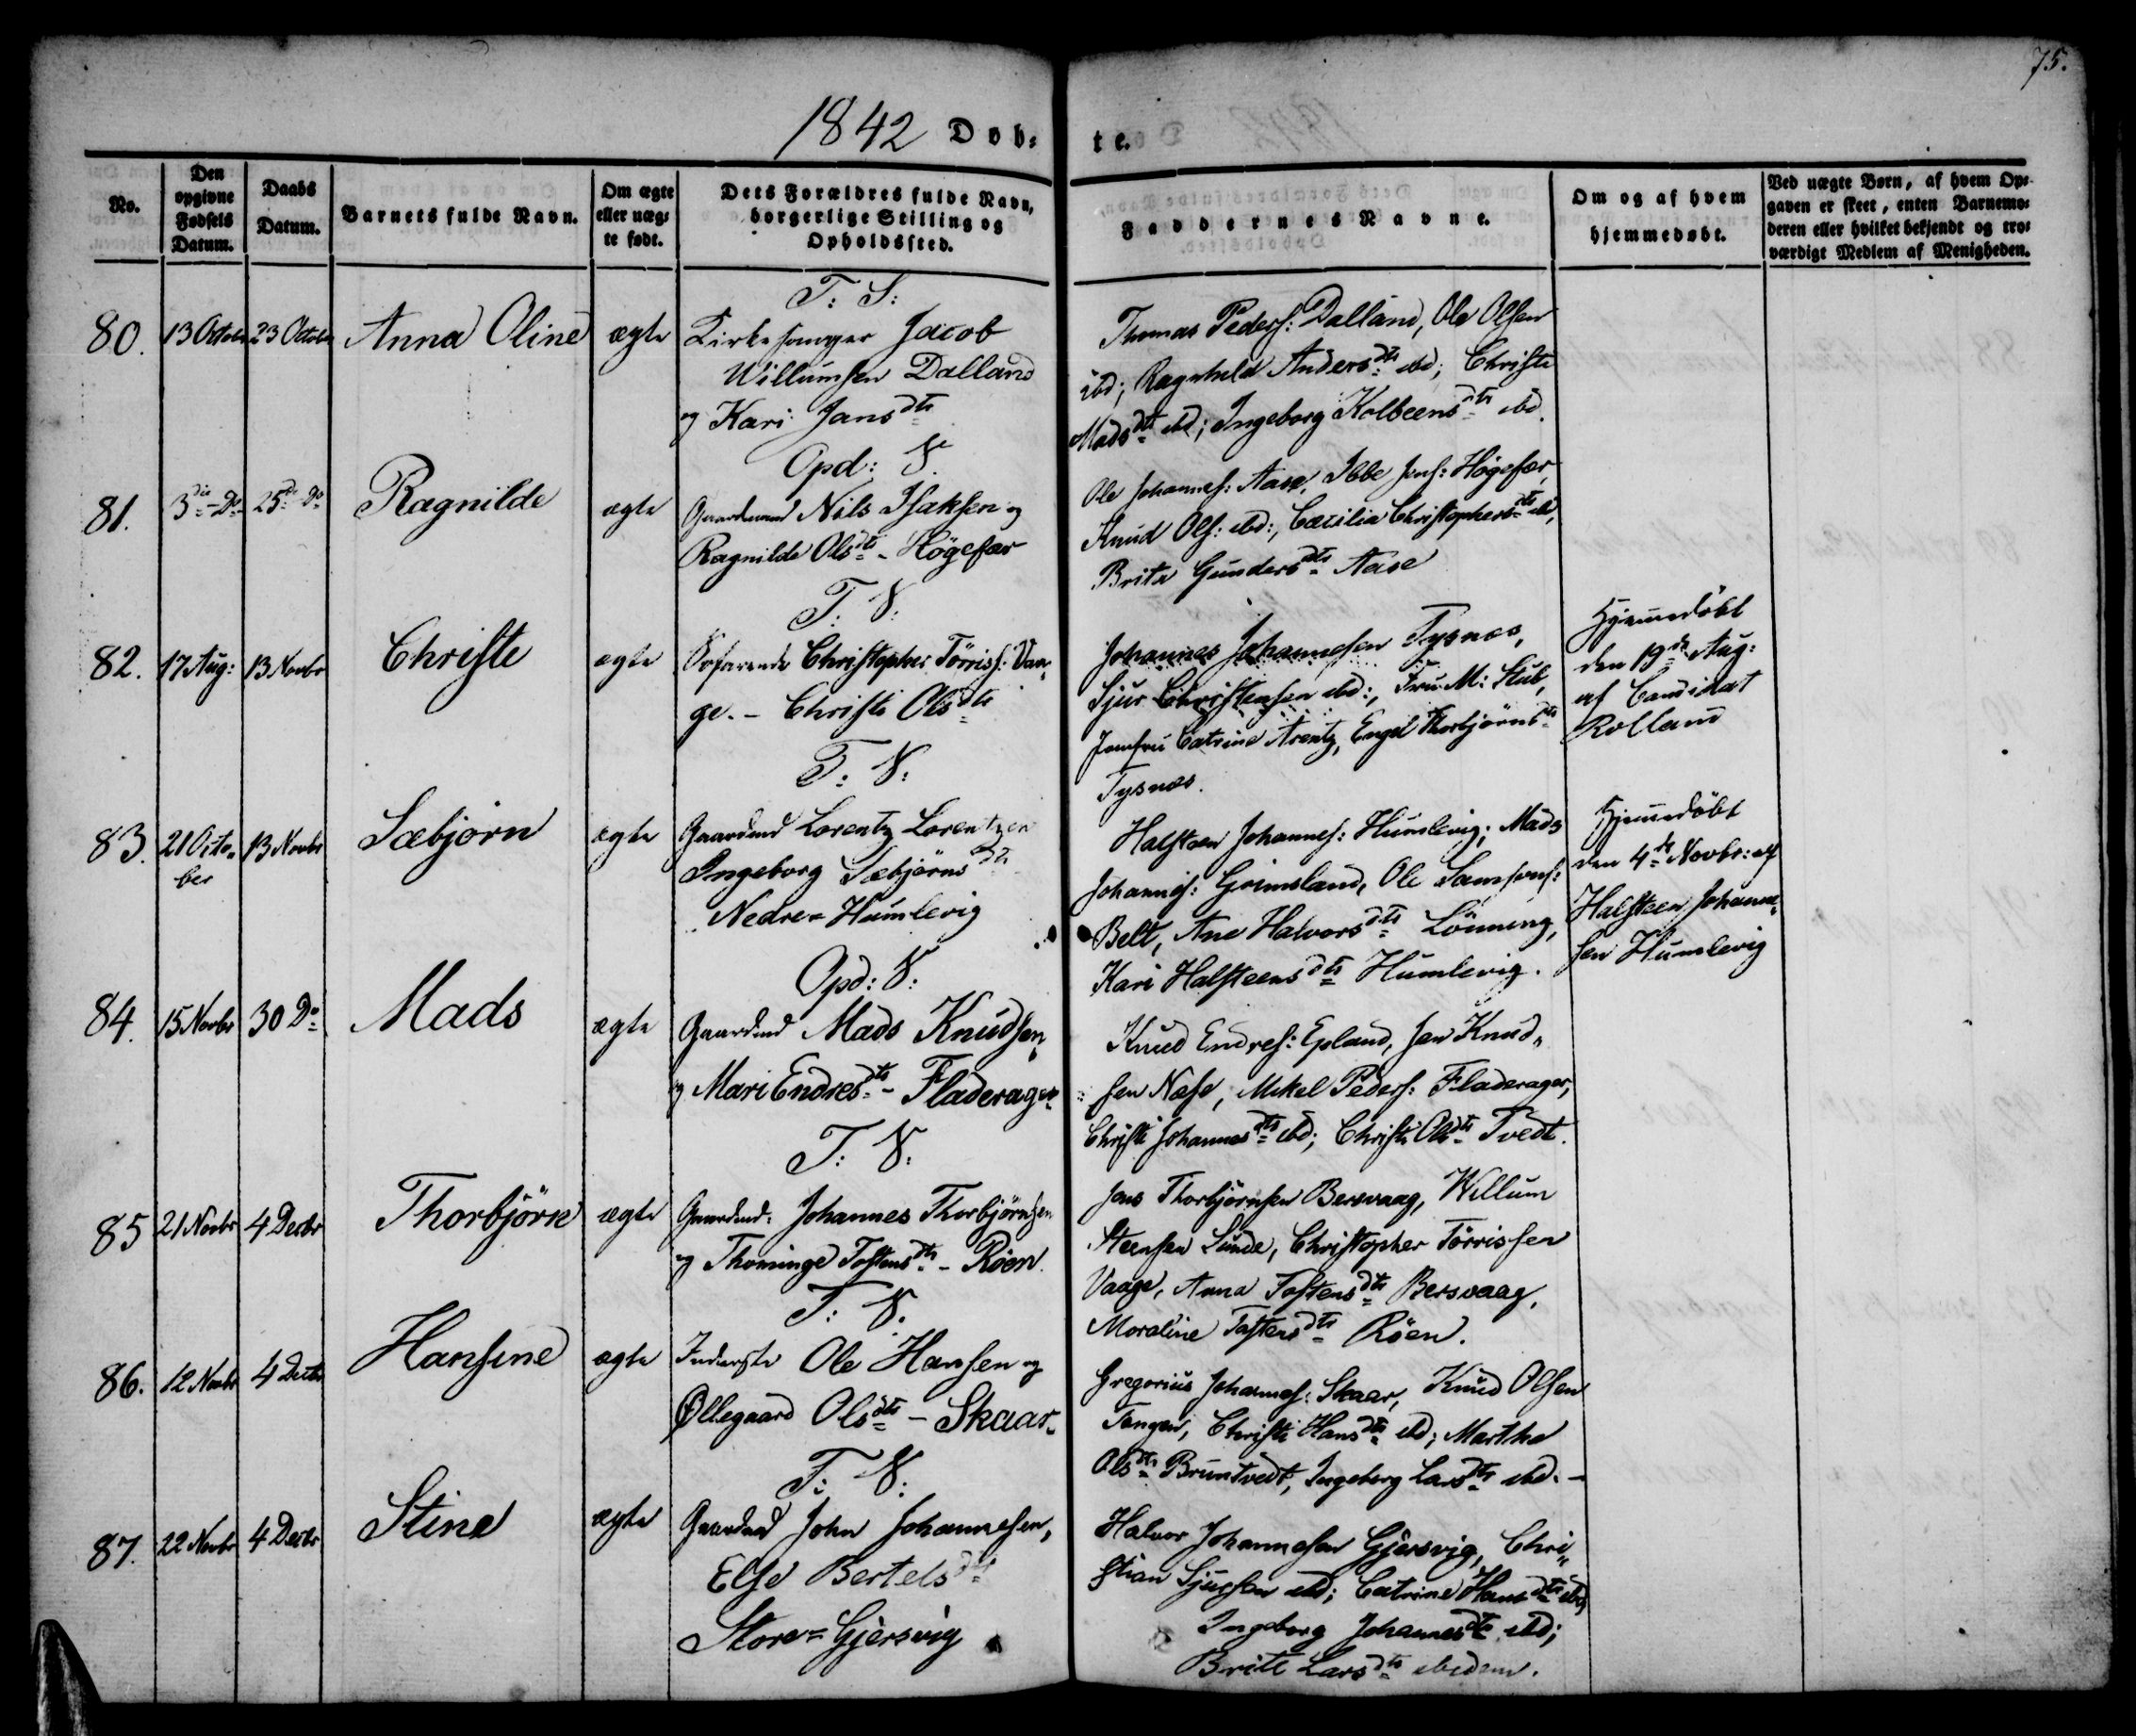 75.
1842 Døb- te.
No.
Den opgivne Fødsels Datum.
Daabs Datum.
Barnets fulde Navn.
Om ægte eller uæg- te født.
Dets Forældres fulde Navn, borgerlige Stilling og Opholdssted.
Faddernes Navne.
Om og af hvem hjemmedøbt.
Ved uægte Børn, af hvem Op- gaven er skeet, enten Barnemo- deren eller hvilket bekjendt og tro- værdigt Medlem af Menigheden.
T: S:
80. 13 Octobr 23 Octobr Anna Oline ægte Kirkesanger Jacob
Willumsen Dalland
og Kari Jans dtr
Thomas Peders: Dalland, Ole Olsen
ibd; Ragnhild Anders dtr ibd; Christi
Mads dtr ibd; Ingeborg Kolbeens dtr ibd.
Opd: S.
81. 3die Do 25de Do Ragnilde ægte Gaardmand Nils Isaksen og
Ragnilde Ols dtr - Högefær
Ole Johannes: Aase, Ibbe Jens: Högefær,
Knud Ols: ibd:, Cæcilia Christophers dtr ibd,
Brita Gunders dtr Aase
T. S:
82. 17 Aug: 13 Novbr Christe ægte Söfarende Christopher Törriss: Vaa-
ge. - Christi Ols dtr
Johannes Johannesen Tysnæs,
Sjur Christensen ibd:, Fru M: Stub,
Jomfru Catrine Arentz, Engel Thorbjörns dtr
Tysnæs.
Hjemmedöbt
den 19de Aug:
af Candidat
Rolland
T: S:
83. 21 Octo-
ber 13 Novbr Sæbjørn ægte Gaardmd Lorentz Lorentzen
Ingeborg Sæbjörns dtr
Nedre-Humlevig
Halsteen Johannes: Humlevig; Mads
Johannes: Grimsland, Ole Samsons:
Belt, Ane Halvors dtr Lönning,
Kari Halsteens dtr Humlevig.
Hjemmedöbt
den 4de Novbr: af
Halsteen Johanne-
sen Humlevig
Opd: S:
84. 15 Novbr 30 Do Mads ægte Gaardmd Mads Knudsen
og Mari Endres dtr - Fladerager
Knud Endres: Epland, Jan Knud-
sen Næse, Mikel Peders: Fladerager,
Christi Johannes dtr ibd; Christi Ols dtr Tvedt.
T: S:
85 21 Novbr 4 Decbr Thorbjörn ægte Gaardmd: Johannes Thorbjörnsen
og Thominge Tostens dtr - Röen.
Jens Thorbjörnsen Bersvaag, Willum
Steensen Sunde, Christopher Törrissen
Vaage, Anna Tostens dtr Bersvaag,
Moraline Tostens dtr Röen.
T: S.
86. 12 Novbr 4 Decbr Hansine ægte Inderste Ole Hansen og
Øllegaard Ols dtr - Skaar
Gregorius Johannes: Skaar, Knud Olsen
Tangen, Christi Hans dtr ibd; Martha
Ols dtr Bruntvedt, Ingeborg Lars dtr ibd. -
T: S:
87. 22 Novbr 4 Decbr Stine ægte Gaardmd John Johannesen,
Else Bertels dtr
Store-Gjersvig
Halvor Johannesen Gjersvig, Chri-
stian Sjursen ibd; Catrine Hans dtr ibd;
Ingeborg Johannes dtr ibd;
Brite Lars dtr ibidem.